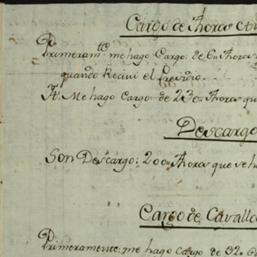 Cargo de Thoras
Primeramte me hago Cargo de Thoras
quando Recivi el
Yt Me hago Cargo de 230 Thoras que
Descargo
Son Descargo: 200 Thoras que se h
Cargo de Cavall
Primeramente: me hago Cargo de 32